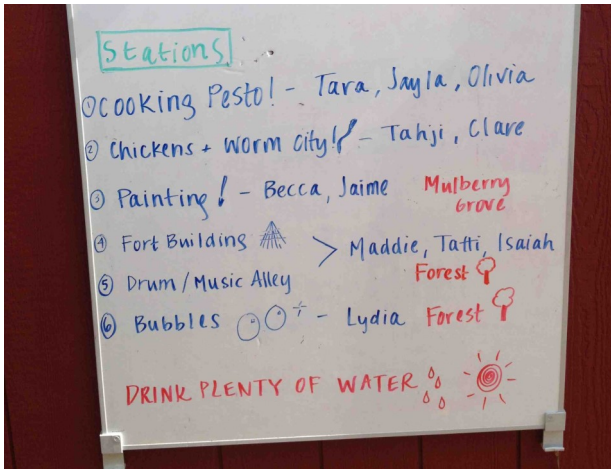 Stations
① COOKING Pesto! - Tara, Jayla, Olivia
② Chickens + WORM CITY! - Tahji, Clare
③ Painting! - Becca, Jaime Mulberry Grove
④ Fort Building > Maddie, Tatti, Isaiah
⑤ Drum/Music Alley Forest
⑥ Bubbles - Lydia Forest
DRINK PLENTY OF WATER